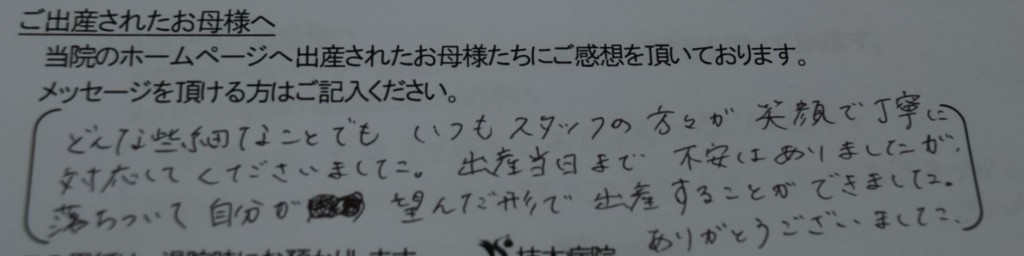 ご出産されたお母様へ
当院のホームページへ出産されたお母様たちにご感想を頂いております。
メッセージを頂ける方はご記入ください。
どんな些細なことでも いつもスタッフの方々が 笑顔で丁寧に
対応してくださいました。出産当日まで 不安はありましたが、
落ちついて 自分が 望んだ形で 出産することができました。
ありがとうございました。